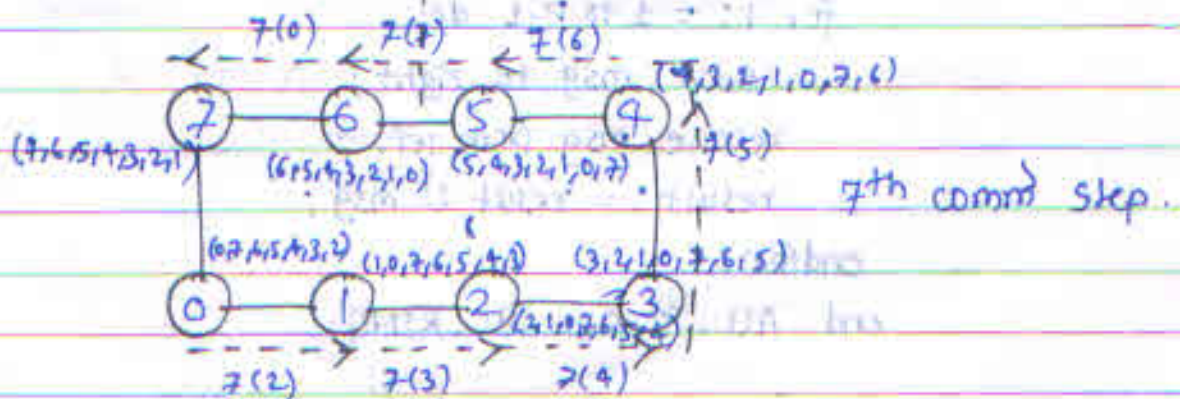 7(0) 7(7) 7(6)
(4,3,2,1,0,7,6)
7 6 5 4
7(5)
(7,6,5,4,3,2,1) (6,5,4,3,2,1,0) (5,4,3,2,1,0,7)
7th comm step.
(0,7,6,5,4,3,2) (1,0,7,6,5,4,3) (3,2,1,0,7,6,5)
0 1 2 3
(2,1,0,7,6,5,4)
7(2) 7(3) 7(4)